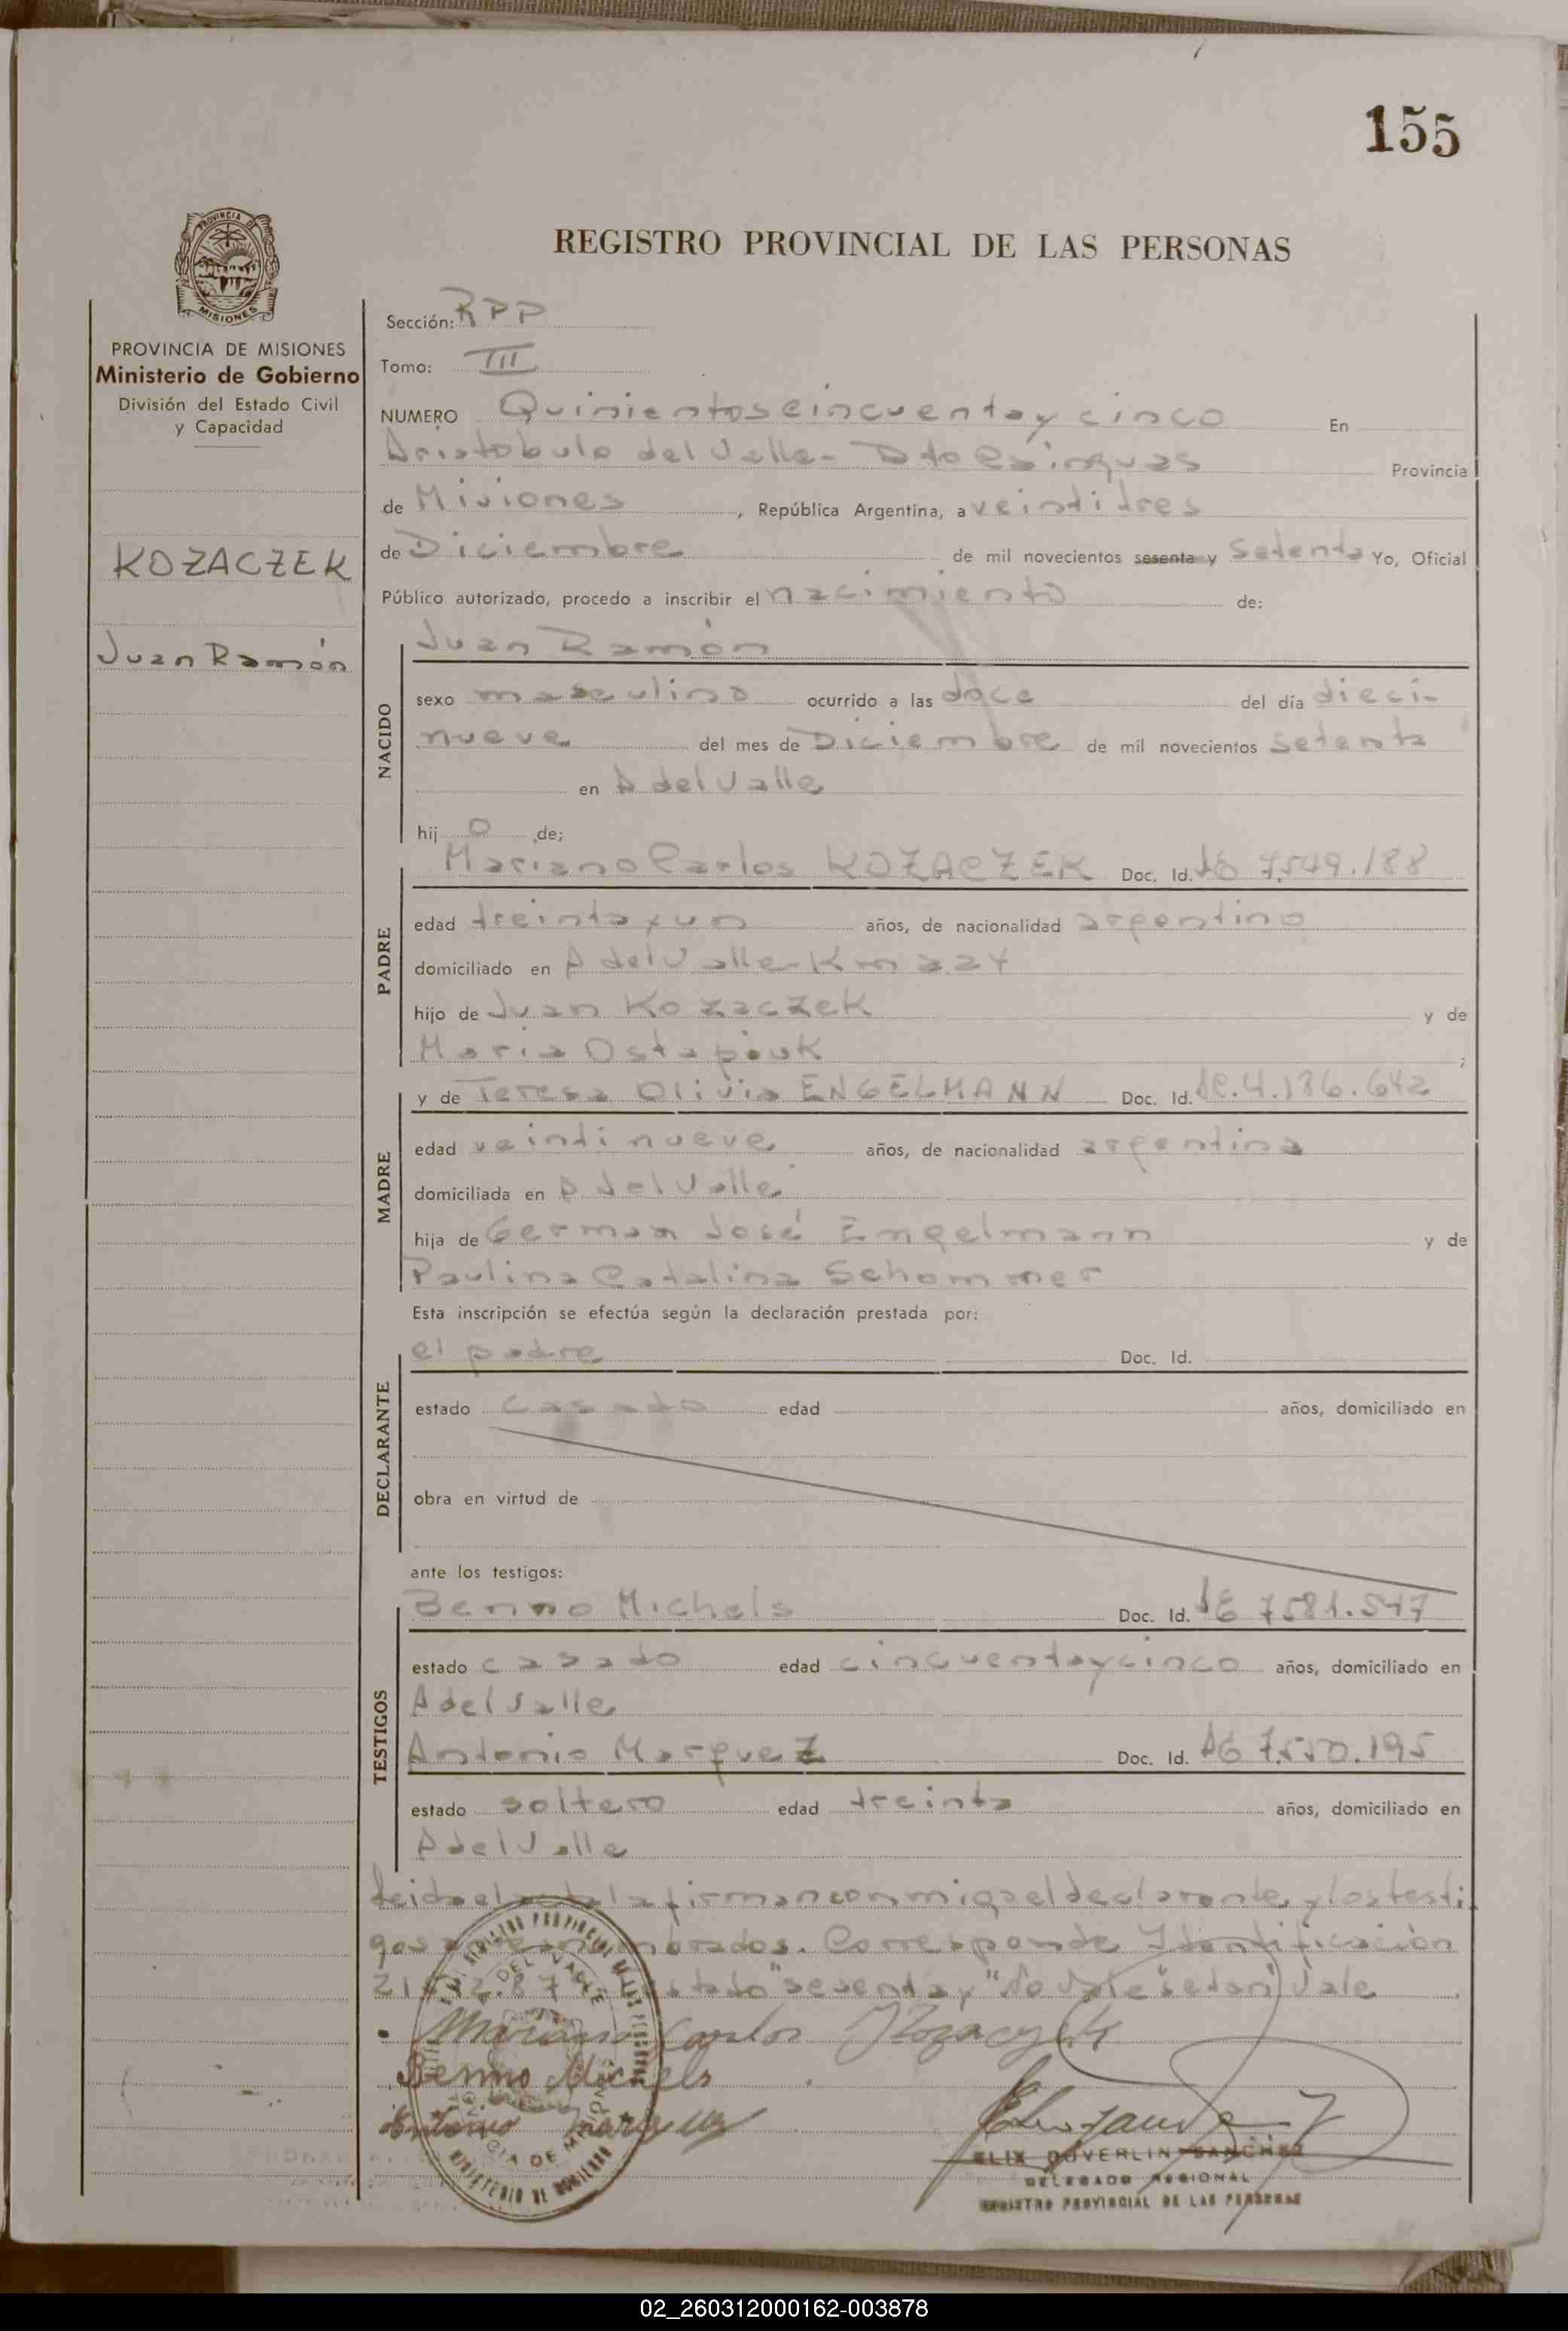 155
REGISTRO PROVINCIAL DE LAS PERSONAS
PROVINCIA DE MISIONES
Ministerio de Gobierno
División del Estado Civil
y Capacidad
KOZACZEK
Juan Ramón
Sección: RPP
Tomo: III
NUMERO Quinientoscincuentay cinco En
Aristobulo del Valle- Dto Cainguas Provincia
de Misiones, República Argentina, a veintitres
de Diciembre de mil novecientos sesenta y Setenta Yo, Oficial
Público autorizado, procedo a inscribir el nacimiento de:
NACIDO
Juan Ramón
sexo masculino ocurrido a las doce del día dieci-
nueve del mes de Diciembre de mil novecientos setenta
en A del Valle
hij o de;
PADRE
Mariano Carlos KOZACZEK Doc. Id. 7.549.188
edad treinta y un años, de nacionalidad argentino
domiciliado en A del Valle-Km 224
hijo de Juan Kozaczek y de
Maria Ostapiuk ;
MADRE
y de Teresa Olivia ENGELMANN Doc. Id. 4.186.642
edad veintinueve años, de nacionalidad argentina
domiciliada en A del Valle
hija de German José Engelmann y de
Paulina Catalina Schommer
Esta inscripción se efectúa según la declaración prestada por:
DECLARANTE
el padre Doc. Id.
estado casado edad años, domiciliado en
obra en virtud de
ante los testigos:
TESTIGOS
Benno Michels Doc. Id. 7581.547
estado casado edad cincuentaycinco años, domiciliado en
A del Valle
Antonio Marquez Doc. Id. 7.550.195
estado soltero edad treinta años, domiciliado en
A del Valle
Leida el acta la firman conmigo el declarante y los testi
gos nombrados. Corresponde Identificación
"sesenta y" No Vale "seten" Vale
Mariano Carlos Kozaczek
Benno Michels
Antonio Marquez
ELIX DUVERLIN SANCHEZ
DELEGADO REGIONAL
REGISTRO PROVINCIAL DE LAS PERSONAS
02_260312000162-003878